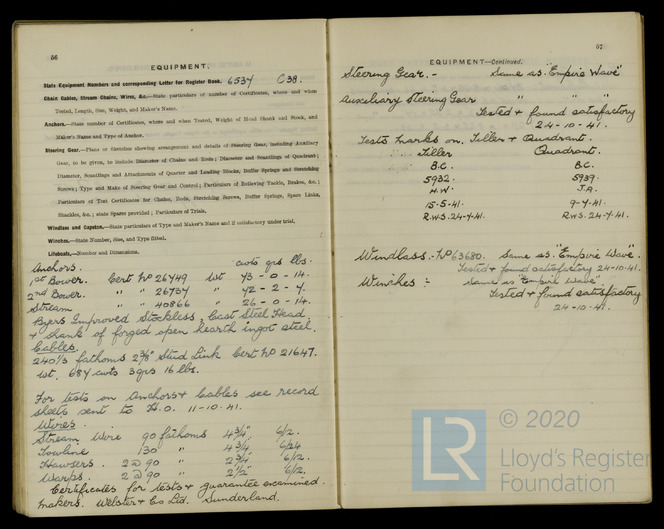 56
EQUIPMENT.
State Equipment Numbers and corresponding Letter for Register Book. 6537 C38.
Chain Cables, Stream Chains, Wires, &c.—State particulars of number of Certificates, where and when
Tested, Length, Size, Weight, and Maker's Name.
Anchors.—State number of Certificates, where and when Tested, Weight of Head Shank and Stock, and
Maker's Name and Type of Anchor.
Steering Gear.—Plans or Sketches showing arrangement and details of Steering Gear, including Auxiliary
Gear, to be given, to include Diameter of Chains and Rods; Diameter and Scantlings of Quadrant;
Diameter, Scantlings and Attachments of Quarter and Leading Blocks, Buffer Springs and Stretching
Screws; Type and Make of Steering Gear and Control; Particulars of Relieving Tackle, Brakes, &c.;
Particulars of Test Certificates for Chains, Rods, Stretching Screws, Buffer Springs, Span Links,
Shackles, &c.; state Spares provided; Particulars of Trials.
Windlass and Capstan.—State particulars of Type and Maker's Name and if satisfactory under trial.
Winches.—State Number, Size, and Type fitted.
Lifeboats.—Number and Dimensions.
Anchors. cwts qrs lbs.
1st Bower. Cert No 26749 wt 43 - 0 - 14.
2nd Bower. " " 26737 " 42 - 2 - 7.
Stream " " 40866 " 26 - 0 - 14.
Byers Improved Stockless, Cast Steel Head,
+ shank of forged open hearth ingot steel.
Cables.
240 1/3 fathoms 2 3/16" Stud Link Cert No 21647.
wt. 684 cwts 3 qrs 16 lbs.
For tests on Anchors + Cables see record
sheets sent to H.O. 11-10-41.
Wires.
Stream Wire 90 fathoms 4 3/4" 6/12.
Towline 130 " 4 3/4 6/24
Hawsers. 2 @ 90 " 2 3/4" 6/12.
Warps. 2 @ 90 " 2 1/2" 6/12.
Certificates for tests + guarantee examined.
Makers. Webster + Co Ltd. Sunderland.
57
EQUIPMENT—Continued.
Steering Gear. - Same as "Empire Wave"
Auxiliary Steering Gear " " "
Tested + found satisfactory
24-10-41.
Tests Marks on Tiller + Quadrant.
Tiller Quadrant.
B.C. B.C.
5932 5939
H.W. J.A.
15-5-41. 9-7-41.
R.W.S. 24-7-41. R.W.S. 24-7-41.
Windlass.- No 63680. Same as "Empire Wave".
Tested + found satisfactory 24-10-41.
Winches :- Same as "Empire Wave"
Tested + found satisfactory
24-10-41.
LR
© 2020
Lloyd's Register
Foundation